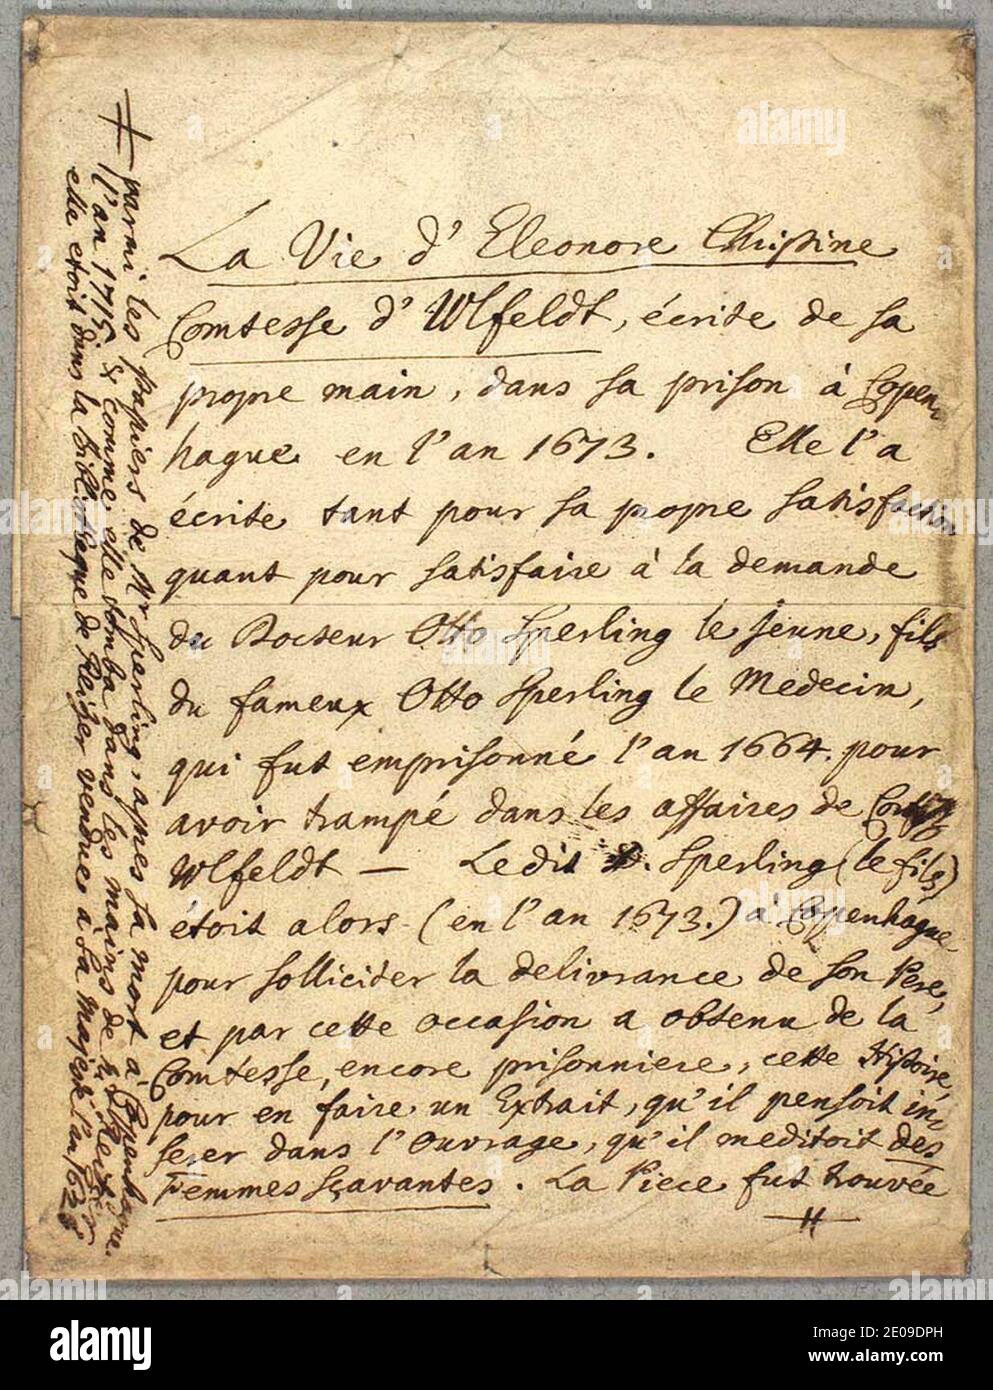 La Vie d'Eleonore Christine
Comtesse d'Ulfeldt, écrite de sa
propre main, dans sa prison à Copen-
hague en l'an 1673. Elle l'a
écrite tant pour sa propre satisfaction
quant pour satisfaire à la demande
du Docteur Otto Sperling le jeune, fils
du fameux Otto Sperling le Medecin,
qui fut emprisonné l'an 1664. pour
avoir trampé dans les affaires de
Ulfeldt — Ledit D. Sperling (le fils)
étoit alors (en l'an 1673.) à Copenhague
pour solliciter la delivrance de son Pere,
et par cette occasion a obtenu de la
Comtesse, encore prisonniere, cette Histoire,
pour en faire un Extrait, qu'il pensoit in-
serer dans l'Ouvrage, qu'il meditoit des
Femmes sçavantes. La Piece fut trouvée
parmi les papiers de Mr Sperling, apres sa mort à Copenhague
l'an 1715 & comme elle tomba dans les mains de
elle etoit dans la Bibliotheque de Reizer vendue à Sa Majesté l'an
alamy
Image ID: 2E09DPH
www.alamy.com